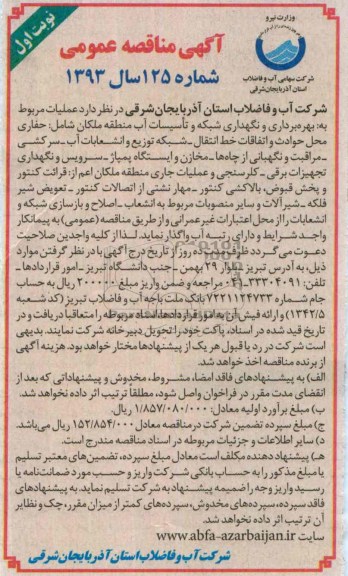 نوبت اول
وزارت نیرو
شرکت سهامی آب و فاضلاب
استان آذربایجان‌شرقی
آگهی مناقصه عمومی
شماره ۱۲۵ سال ۱۳۹۳
شرکت آب و فاضلاب استان آذربایجان‌شرقی در نظر دارد عملیات مربوط
به: بهره‌برداری و نگهداری شبکه و تأسیسات آب منطقه ملکان شامل: حفاری
محل حوادث و اتفاقات خط انتقال ـ شبکه توزیع و انشعابات آب ـ سرکشی
ـ مراقبت و نگهبانی از چاه‌ها ـ مخازن و ایستگاه پمپاژ ـ سرویس و نگهداری
تجهیزات برقی ـ کلرسنجی و عملیات جاری منطقه ملکان اعم از: قرائت کنتور
و پخش قبوض، بالاکشی کنتور ـ مهار نشتی از اتصالات کنتور ـ تعویض شیر
فلکه ـ شیرآلات و سایر منصوبات مربوط به انشعاب ـ اصلاح و بازسازی شبکه و
انشعابات را از محل اعتبارات غیر عمرانی و از طریق مناقصه (عمومی) به پیمانکار
واجد شرایط و دارای رتبه آب واگذار نماید. لذا از کلیه واجدین صلاحیت
دعوت می‌گردد ظرف مدت ده روز از تاریخ درج آگهی با در نظر گرفتن موارد
ذیل، به آدرس تبریز بلوار ۲۹ بهمن ـ جنب دانشگاه تبریز ـ امور قراردادها ـ
تلفن: ۳۳۳۰۴۰۹۱ـ۰۴۱ مراجعه و ضمن واریز مبلغ ۲۰۰۰۰۰ ریال به حساب
جام شماره ۷۲۲۱۱۲۴۷۳۳ بانک ملت باجه آب و فاضلاب تبریز (کد شعبه
۱۳۴۲/۵) و ارائه فیش آن به امور قراردادها، اسناد مربوطه را متعاقبا دریافت و در
تاریخ قید شده در اسناد، پاکت خود را تحویل دبیرخانه شرکت نمایند. بدیهی
است شرکت در رد یا قبول هر یک از پیشنهادها مختار خواهد بود. هزینه آگهی
از برنده مناقصه اخذ خواهد شد.
الف) به پیشنهادهای فاقد امضا، مشروط، مخدوش و پیشنهاداتی که بعد از
انقضای مدت مقرر در فراخوان واصل شود، مطلقا ترتیب اثر داده نخواهد شد.
ب) مبلغ برآورد اولیه معادل: ۱/۸۵۷/۰۸۰/۰۰۰ ریال.
ج) مبلغ سپرده تضمین شرکت در مناقصه معادل ۱۵۲/۸۵۴/۰۰۰ ریال می‌باشد.
د) سایر اطلاعات و جزئیات مربوطه در اسناد مناقصه مندرج است.
هـ) پیشنهاد دهنده مکلف است معادل مبلغ سپرده، تضمین‌های معتبر تسلیم
یا مبلغ مذکور را به حساب بانکی شرکت واریز و حسب مورد ضمانت‌نامه یا
رسید واریز وجه را ضمیمه پیشنهاد به شرکت تسلیم نماید. به پیشنهادهای
فاقد سپرده، سپرده‌های مخدوش، سپرده‌های کمتر از میزان مقرر، چک و نظایر
آن ترتیب اثر داده نخواهد شد.
سایت www.abfa-azarbaijan.ir
شرکت آب و فاضلاب استان آذربایجان شرقی